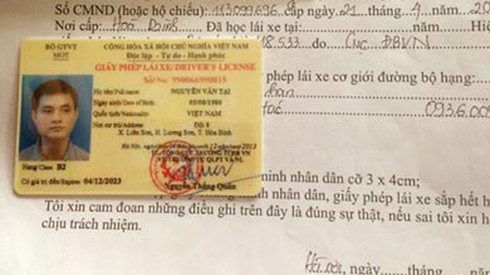 Số CMND (hoặc hộ chiếu): 113099696 cấp ngày 21 tháng 4 năm 20
Nơi cấp: Hoà Bình Đã học lái xe tại: năm Hiệ
8.533 do Cục ĐBVN
phép lái xe cơ giới đường bộ hạng:
093.6.00
BỘ GTVT
MOT
CỘNG HÒA XÃ HỘI CHỦ NGHĨA VIỆT NAM
Độc lập - Tự do - Hạnh phúc
GIẤY PHÉP LÁI XE/DRIVER'S LICENSE
Số/No: 990066990815
Họ tên/Full name: NGUYỄN VĂN TẠI
Ngày sinh/Date of Birth: 05/08/1980
Quốc tịch/Nationality: VIỆT NAM
Nơi cư trú/Address: Đội 8
X. Liên Sơn, H. Lương Sơn, T. Hòa Bình
Hạng/Class: B2
Có giá trị đến/Expires: 04/12/2023
Nguyễn Thắng Quân
minh nhân dân cỡ 3 x 4cm;
minh nhân dân, giấy phép lái xe sắp hết h
Tôi xin cam đoan những điều ghi trên đây là đúng sự thật, nếu sai tôi xin h
chịu trách nhiệm.
ngày tháng năm